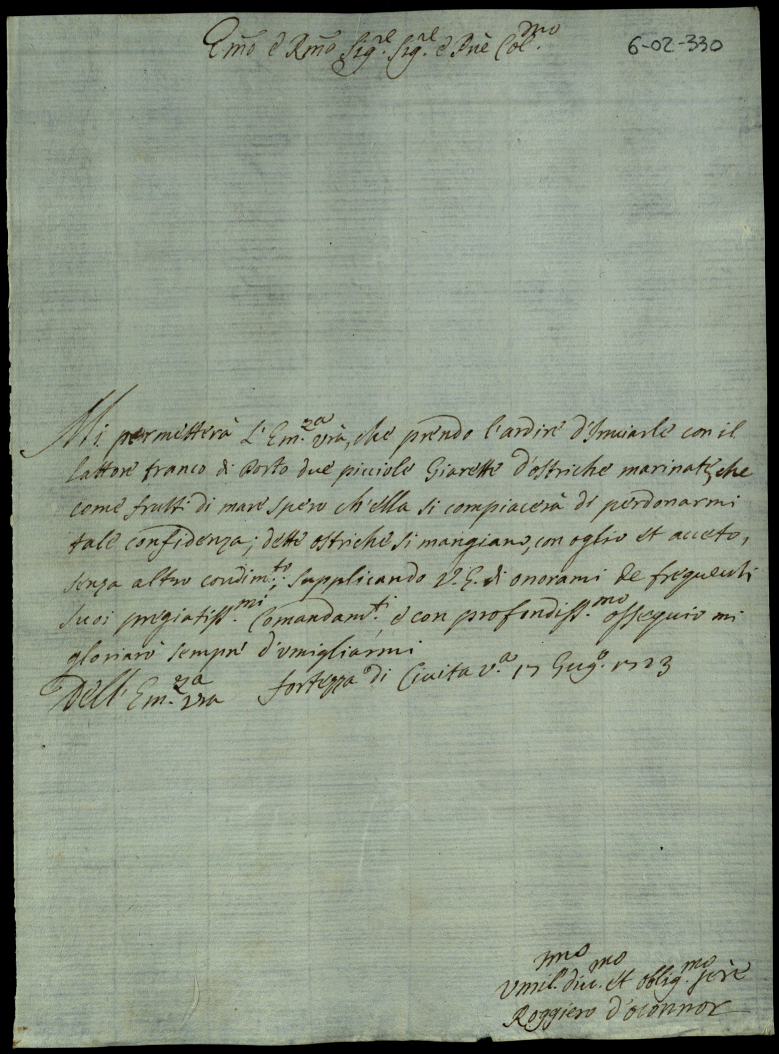 Emõ e Rmõ Sig.re Sig.re e Pñe Col.mo
6-02-330
Mi permetterà L'Em.za Vrã, che prendo l'ardire d'Inviarle con il
lattore franco di Porto due picciole Giarette d'ostriche marinate, che
come frutti di mare spero ch'ella si compiacerà di perdonarmi
tale confidenza; dette ostriche si mangiano, con oglio et acceto,
senza altro condim.to; supplicando V.E. di onorami de frequenti
suoi pregiatiss.mi Comandam.ti, e con profondiss.mo ossequio mi
gloriarò sempre d'umigliarmi
Dell Em.za Vra fortezza di Civita V.a 17 Giug.o 1723
Vmil.mo div.mo et oblig.mo serẽ
Roggiero d'oconnor